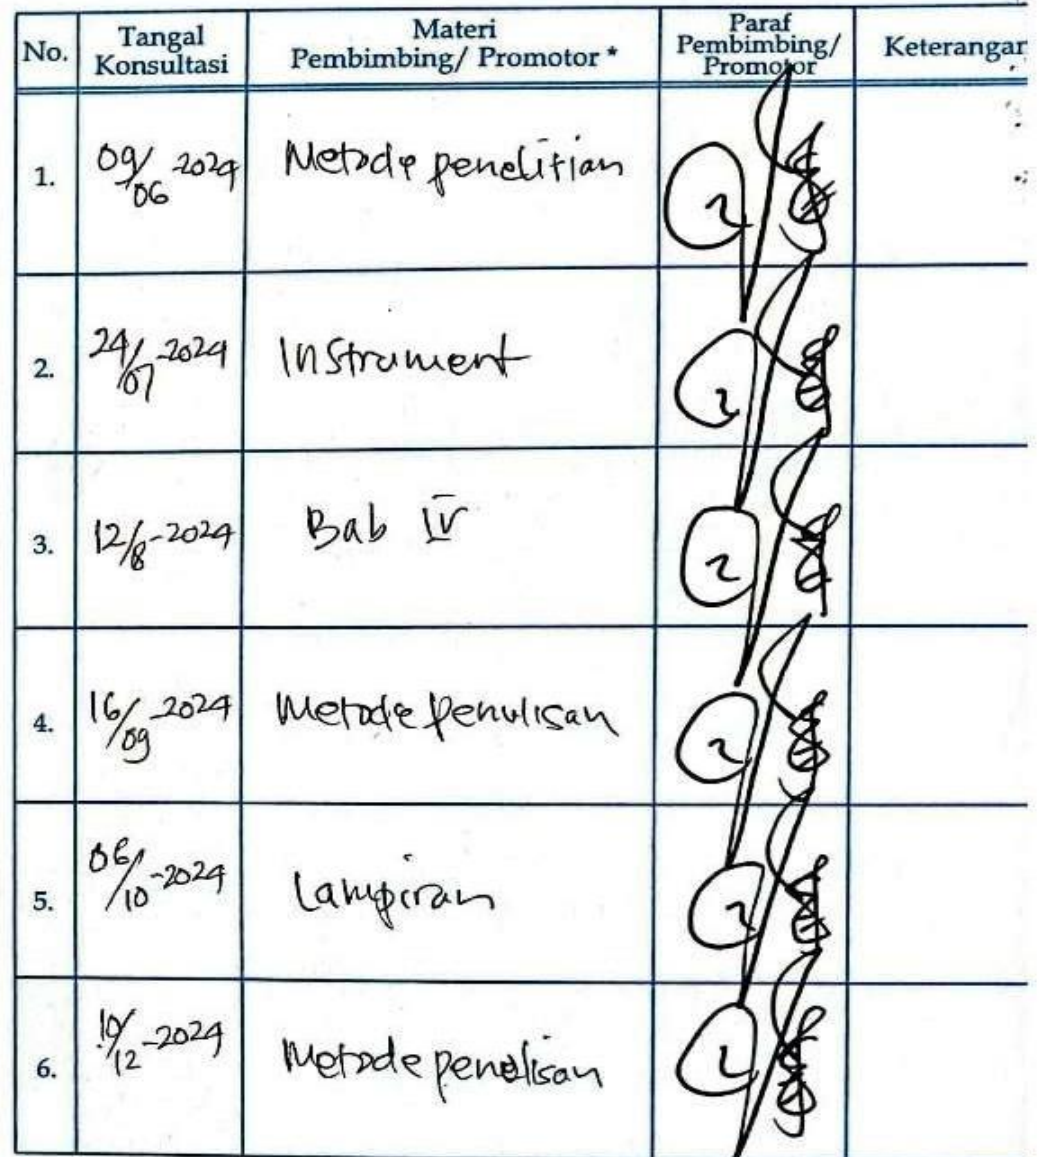 No. Tangal Konsultasi Materi Pembimbing/ Promotor * Paraf Pembimbing/ Promotor Keterangan
1. 09/06-2024 Metode penelitian
2. 24/07-2024 Instrument
3. 12/8-2024 Bab IV
4. 16/09-2024 Metode penulisan
5. 06/10-2024 Lampiran
6. 10/12-2024 Metode penulisan